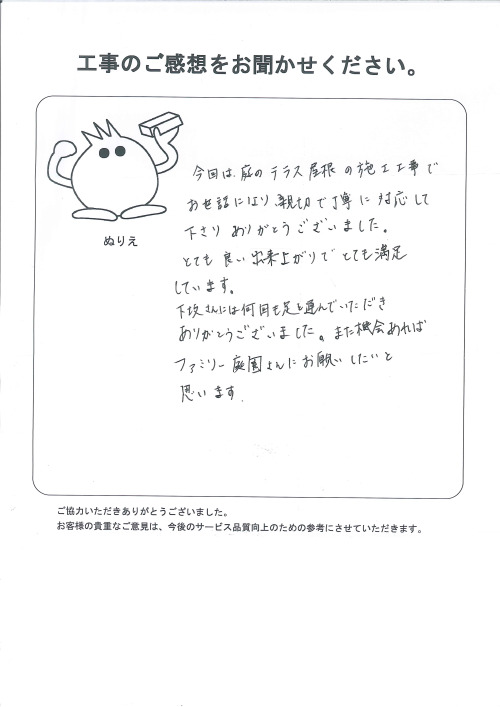 工事のご感想をお聞かせください。
ぬりえ
今回は、庭のテラス屋根の施工工事で
お世話になり親切で丁寧に対応して
下さりありがとうございました。
とても良い出来上がりでとても満足
しています。
下坂さんには何回も足を運んでいただき
ありがとうございました。また機会あれば
ファミリー庭園さんにお願いしたいと
思います.
ご協力いただきありがとうございました。
お客様の貴重なご意見は、今後のサービス品質向上のための参考にさせていただきます。